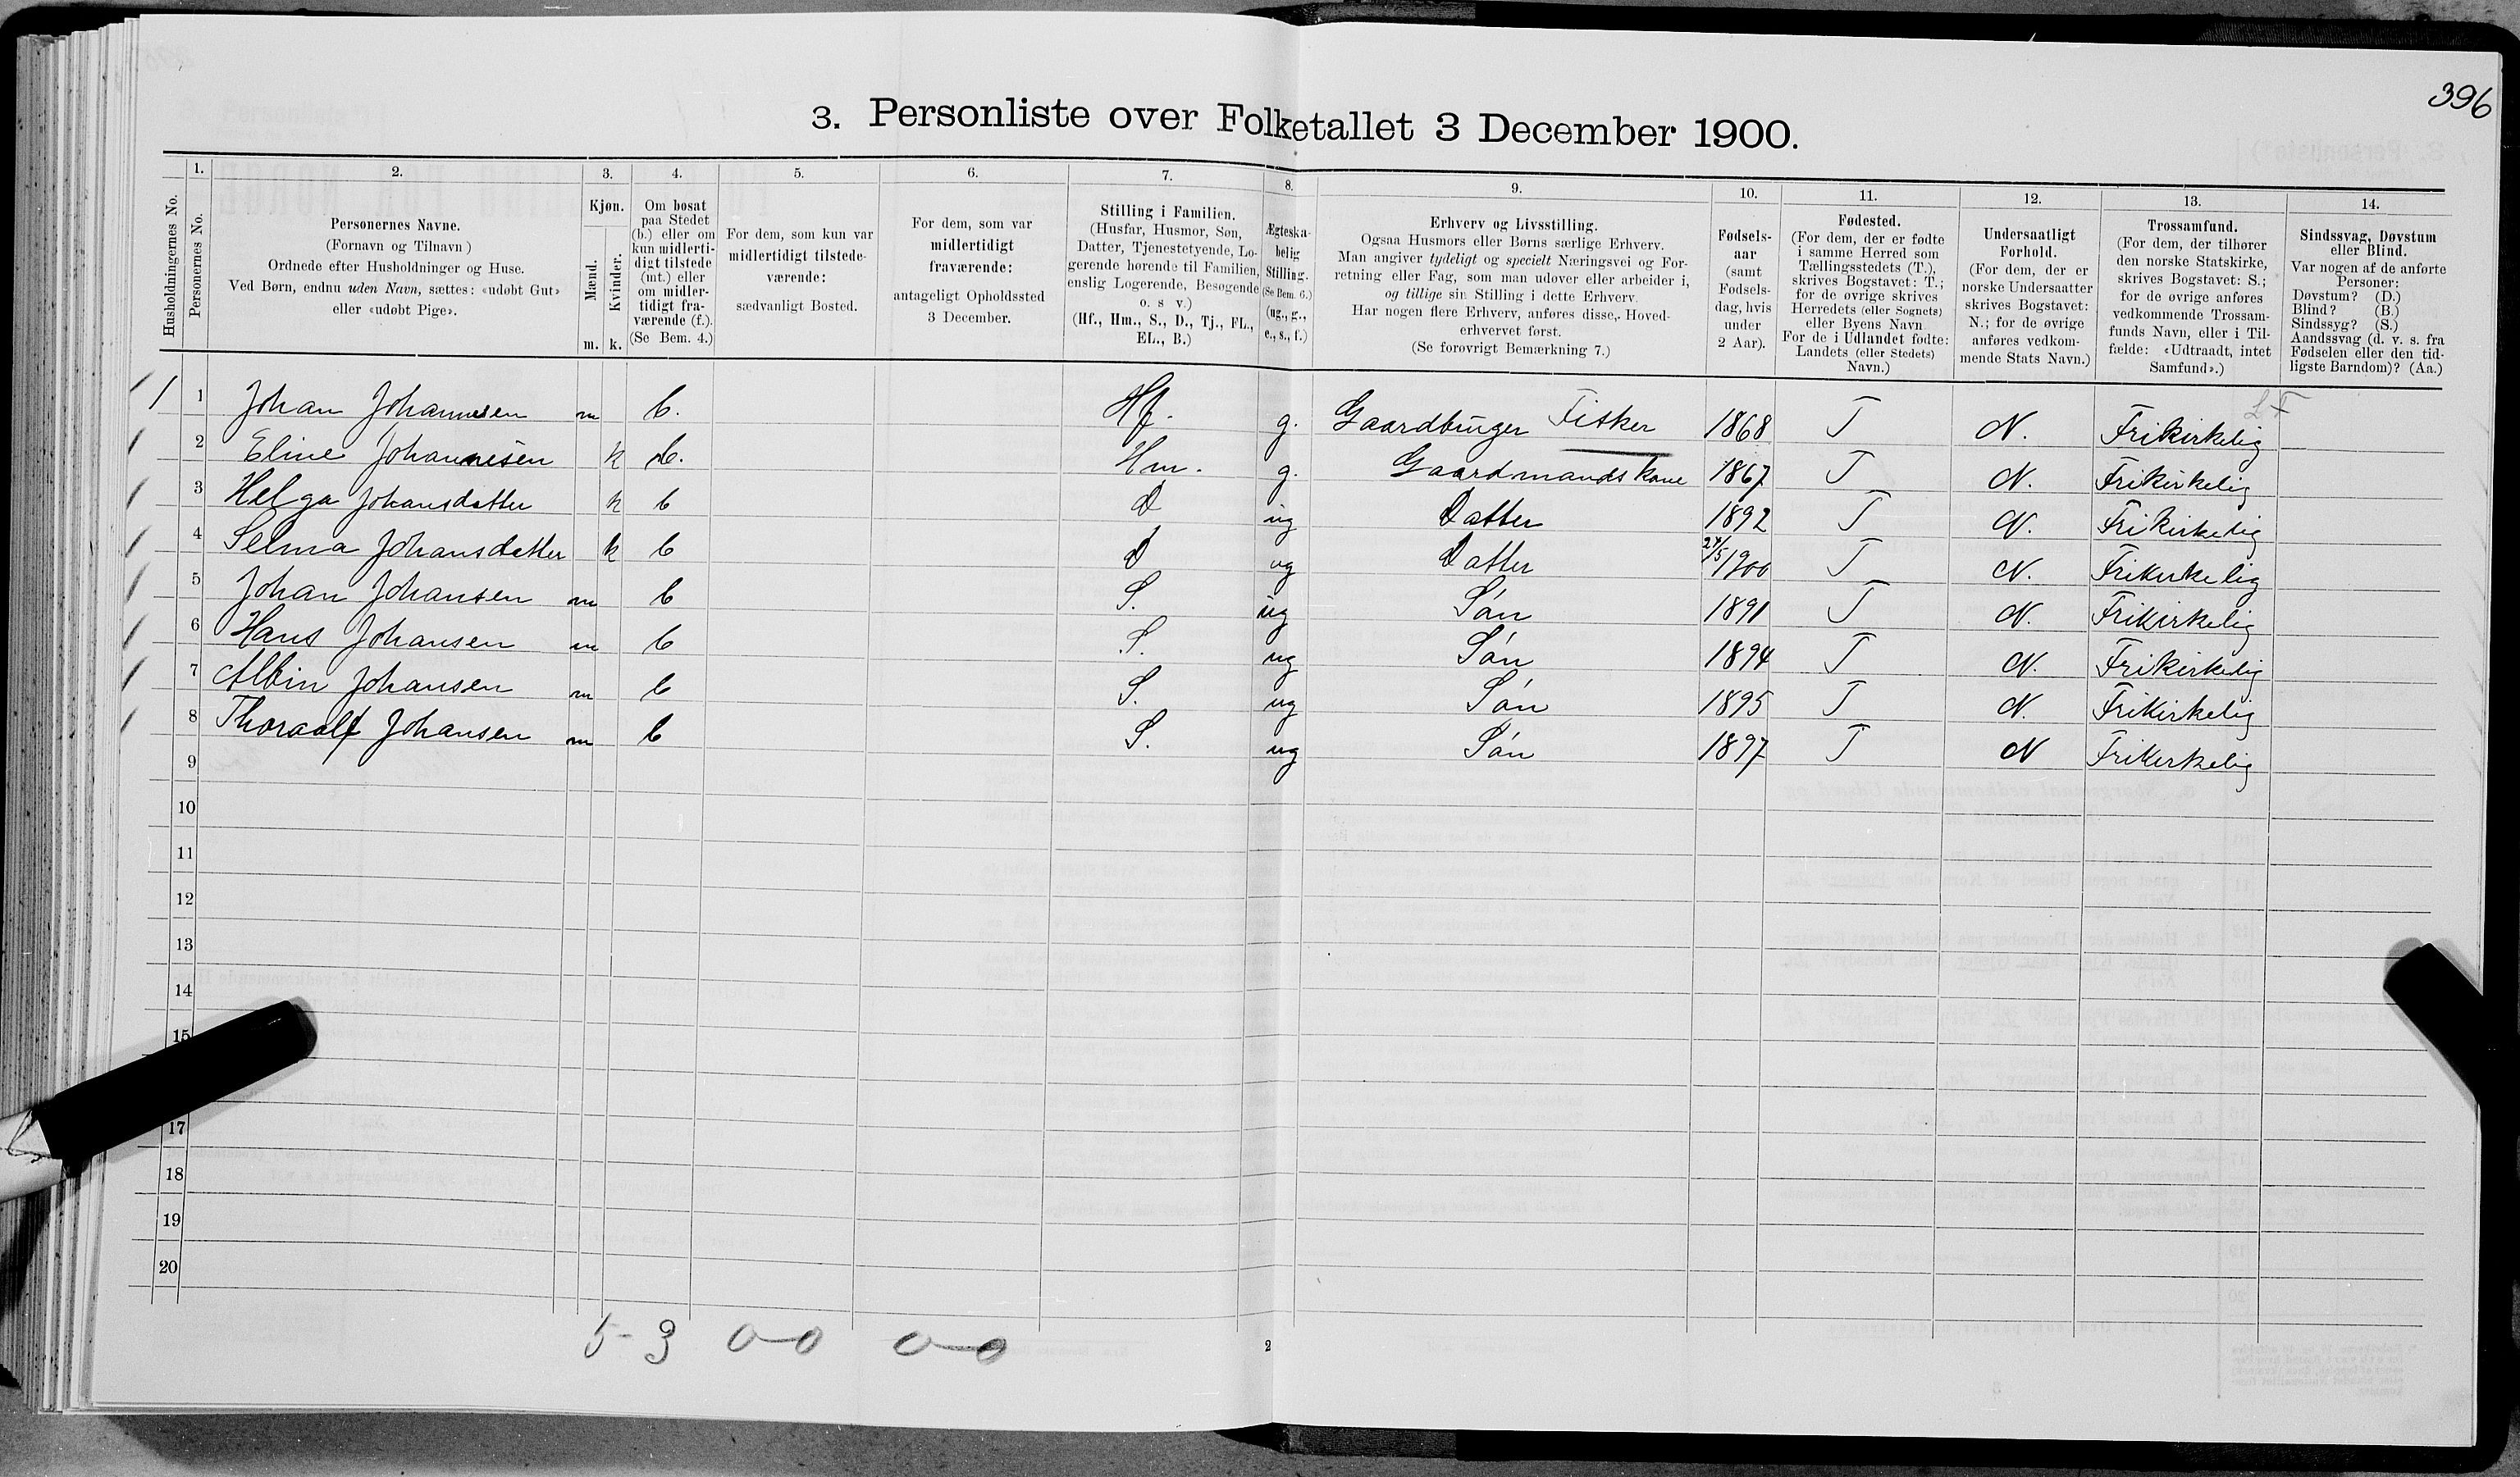 396
3. Personliste over Folketallet 3 December 1900.
Husholdningernes No.
1.
Personernes No.
2.
Personernes Navne.
(Fornavn og Tilnavn)
Ordnede efter Husholdninger og Huse.
Ved Børn, endnu uden Navn, sættes: «udøbt Gut»
eller «udøbt Pige».
3.
Kjøn.
Mænd.
Kvinder.
m. k.
4.
Om bosat
paa Stedet
(b.) eller om
kun midlerti-
digt tilstede
(mt.) eller
om midler-
tidigt fra-
værende (f.).
(Se Bem. 4.)
5.
For dem, som kun var
midlertidigt tilstede-
værende:
sædvanligt Bosted.
6.
For dem, som var
midlertidigt
fraværende:
antageligt Opholdssted
3 December.
7.
Stilling i Familien.
(Husfar, Husmor, Søn,
Datter, Tjenestetyende, Lo-
gerende hørende til Familien,
enslig Logerende, Besøgende
o. s v.)
(Hf., Hm., S., D., Tj., FL.,
EL., B.)
8.
Ægteska-
belig
Stilling.
(Se Bem. 6.)
(ug., g.,
e., s., f.)
9.
Erhverv og Livsstilling.
Ogsaa Husmors eller Børns særlige Erhverv.
Man angiver tydeligt og specielt Næringsvei og For-
retning eller Fag, som man udøver eller arbeider i,
og tillige sin Stilling i dette Erhverv.
Har nogen flere Erhverv, anføres disse, Hoved-
erhvervet først.
(Se forøvrigt Bemærkning 7.)
10.
Fødsels-
aar
(samt
Fødsels-
dag, hvis
under
2 Aar).
11.
Fødested.
(For dem, der er fødte
i samme Herred som
Tællingsstedets (T.),
skrives Bogstavet: T.;
for de øvrige skrives
Herredets (eller Sognets)
eller Byens Navn
For de i Udlandet fødte:
Landets (eller Stedets)
Navn.)
12.
Undersaatligt
Forhold.
(For dem, der er
norske Undersaatter
skrives Bogstavet:
N.; for de øvrige
anføres vedkom-
mende Stats Navn.)
13.
Trossamfund.
(For dem, der tilhører
den norske Statskirke,
skrives Bogstavet: S.;
for de øvrige anføres
vedkommende Trossam-
funds Navn, eller i Til-
fælde: «Udtraadt, intet
Samfund».)
14.
Sindssvag, Døvstum
eller Blind.
Var nogen af de anførte
Personer:
Døvstum? (D.)
Blind? (B.)
Sindssyg? (S.)
Aandssvag (d. v. s. fra
Fødselen eller den tid-
ligste Barndom)? (Aa.)
1 1 Johan Johannesen m b. Hf. g. Gaardbruger Fisker 1868 T N. Frikirkelig
2 Eline Johannesen k b. Hm. g. Gaardmands kone 1867 T N. Frikirkelig
3 Helga Johansdatter k b D ug Datter 1892 T N. Frikirkelig
4 Selma Johansdatter k b D ug Datter 24/5 1900 T N. Frikirkelig
5 Johan Johansen m b S. ug Søn 1891 T N. Frikirkelig
6 Hans Johansen m b S. ug Søn 1894 T N. Frikirkelig
7 Albin Johansen m b S. ug Søn 1895 T N. Frikirkelig
8 Thoraalf Johansen m b S. ug Søn 1897 T N Frikirkelig
9
10
11
12
13
14
15
17
18
19
20
5 - 3 0-0 0-0
2